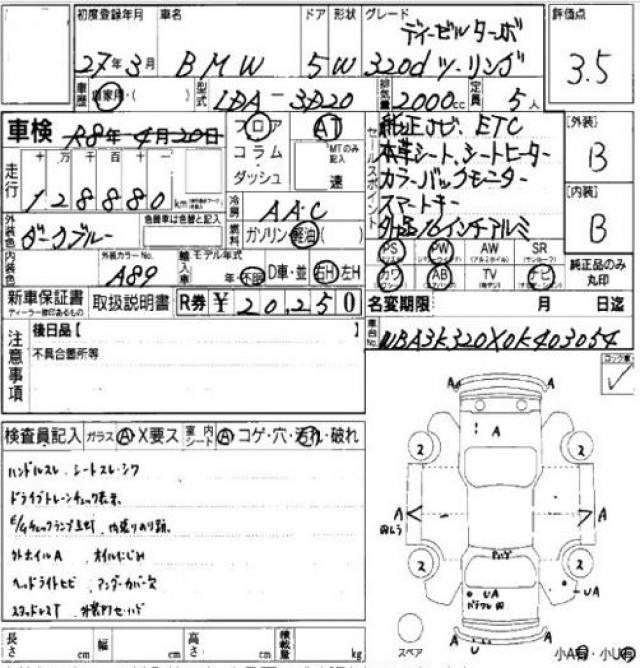 初度登録年月 車名 ドア 形状 グレード 評価点
ディーゼルターボ
27年3月 BMW 5W 320d ツーリング 3.5
車歴 自家用・( ) 型式 LDA-3D20 排気量 2000cc 定員 5人
車検 R8年4月20日 フロア AT セールスポイント 純正ナビ、ETC [外装]
コラム MTのみ記入 本革シート、シートヒーター B
走行 十万千百十一 ダッシュ 速 カラーバックモニター
128880km 冷房 AAC スマートキー [内装]
外装色 ダークブルー 色替車は色替と記入 燃料 ガソリン・軽油( ) 社外16インチアルミ B
内装色 外装カラーNo. A89 輸入車 モデル年式 年・不明 D車・並 右H 左H
PS PW AW SR 純正品のみ丸印
カワ AB TV ナビ
新車保証書 取扱説明書 R券 ¥20,250 名変期限 月 日迄
ディーラー捺印あるもの
注意事項 後日品【 】 車台No. WBA3K320X0K403054
不具合箇所等
ロック有
検査員記入 ガラス A X要ス 室内シート A コゲ・穴・汚れ・破れ
ハンドルスレ、シートスレ・シワ
ドライブトレーンチェック表示、
E/gチェックランプ点灯、
外ホイルA オイルにじみ
ヘッドライトヒビ アンダーカバー欠
スタッドレスT
A A
A
2 2
A A
2 2
UA UA
A U A
スペア 小A有・小U有
長さ cm 幅 cm 高さ cm 積載量 kg